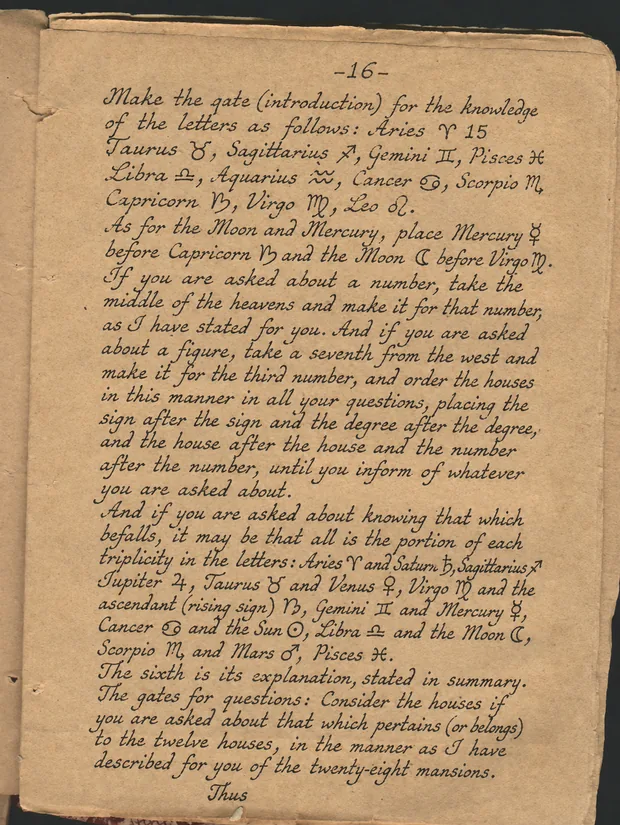 -16-
Make the gate (introduction) for the knowledge
of the letters as follows: Aries ♈ 15
Taurus ♉, Sagittarius ♐, Gemini ♊, Pisces ♓
Libra ♎, Aquarius ♒, Cancer ♋, Scorpio ♏
Capricorn ♑, Virgo ♍, Leo ♌.
As for the Moon and Mercury, place Mercury ☿
before Capricorn ♑ and the Moon ☾ before Virgo ♍.
If you are asked about a number, take the
middle of the heavens and make it for that number,
as I have stated for you. And if you are asked
about a figure, take a seventh from the west and
make it for the third number, and order the houses
in this manner in all your questions, placing the
sign after the sign and the degree after the degree,
and the house after the house and the number
after the number, until you inform of whatever
you are asked about.
And if you are asked about knowing that which
befalls, it may be that all is the portion of each
triplicity in the letters: Aries ♈ and Saturn ♄, Sagittarius ♐
Jupiter ♃, Taurus ♉ and Venus ♀, Virgo ♍ and the
ascendant (rising sign) ♑, Gemini ♊ and Mercury ☿,
Cancer ♋ and the Sun ☉, Libra ♎ and the Moon ☾,
Scorpio ♏ and Mars ♂, Pisces ♓.
The sixth is its explanation, stated in summary.
The gates for questions: Consider the houses if
you are asked about that which pertains (or belongs)
to the twelve houses, in the manner as I have
described for you of the twenty-eight mansions.
Thus